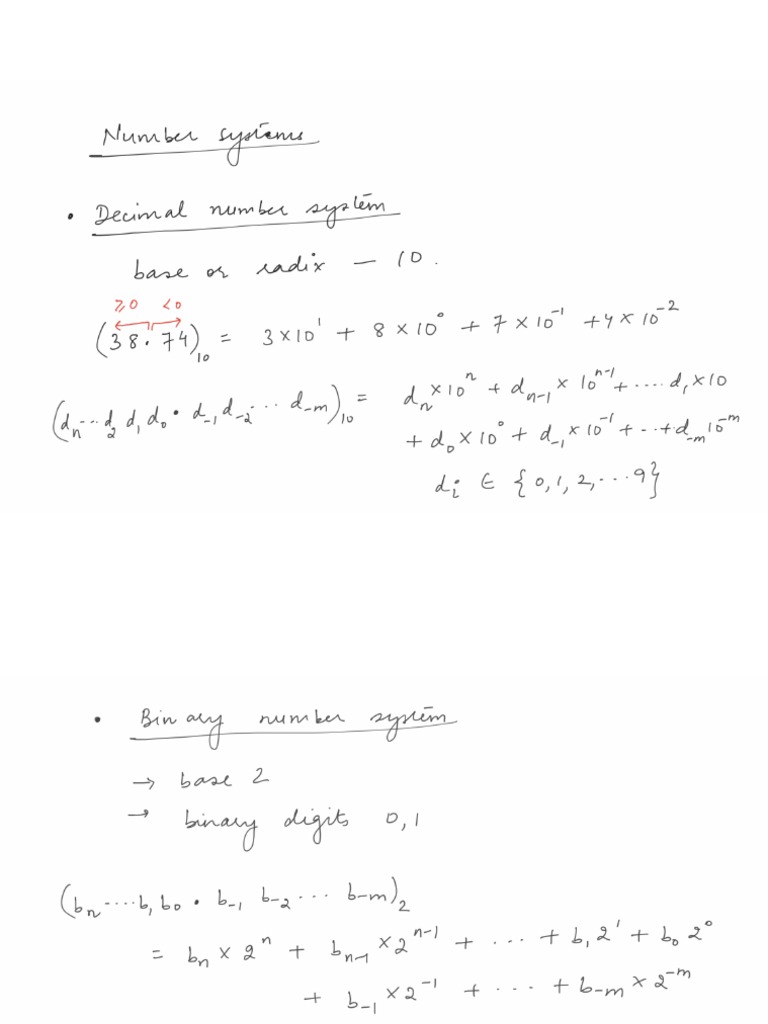 Number systems
• Decimal number system
base or radix — 10.
≥0 <0
(38.74)₁₀ = 3×10¹ + 8×10⁰ + 7×10⁻¹ +4×10⁻²
(dₙ...d₂ d₁ d₀ • d₋₁ d₋₂ ... d₋ₘ)₁₀ = dₙ×10ⁿ + dₙ₋₁×10ⁿ⁻¹+....d₁×10
+ d₀×10⁰ + d₋₁×10⁻¹ +...+d₋ₘ10⁻ᵐ
dᵢ ∈ {0,1,2,...9}
• Binary number system
→ base 2
→ binary digits 0,1
(bₙ....b₁b₀ • b₋₁ b₋₂ ... b₋ₘ)₂
= bₙ×2ⁿ + bₙ₋₁×2ⁿ⁻¹ + ... + b₁2¹ + b₀2⁰
+ b₋₁×2⁻¹ + ... + b₋ₘ×2⁻ᵐ